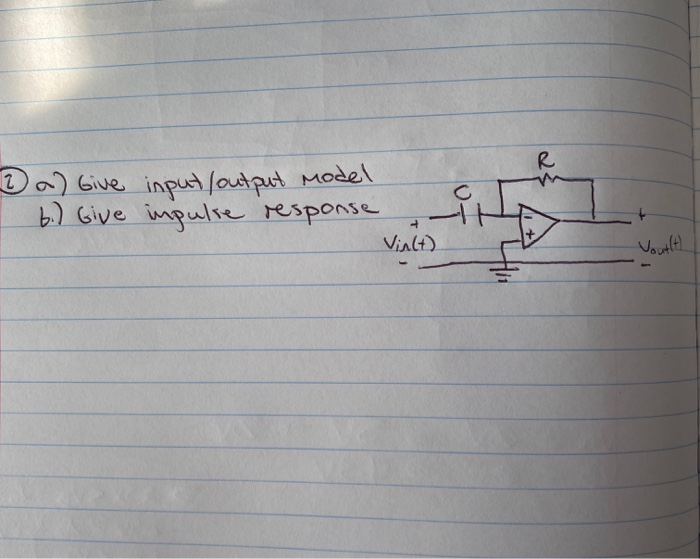 ② a) Give input/output Model
b.) Give impulse response
R
C
+
Vin(t)
-
-
+
+
Vout(t)
-